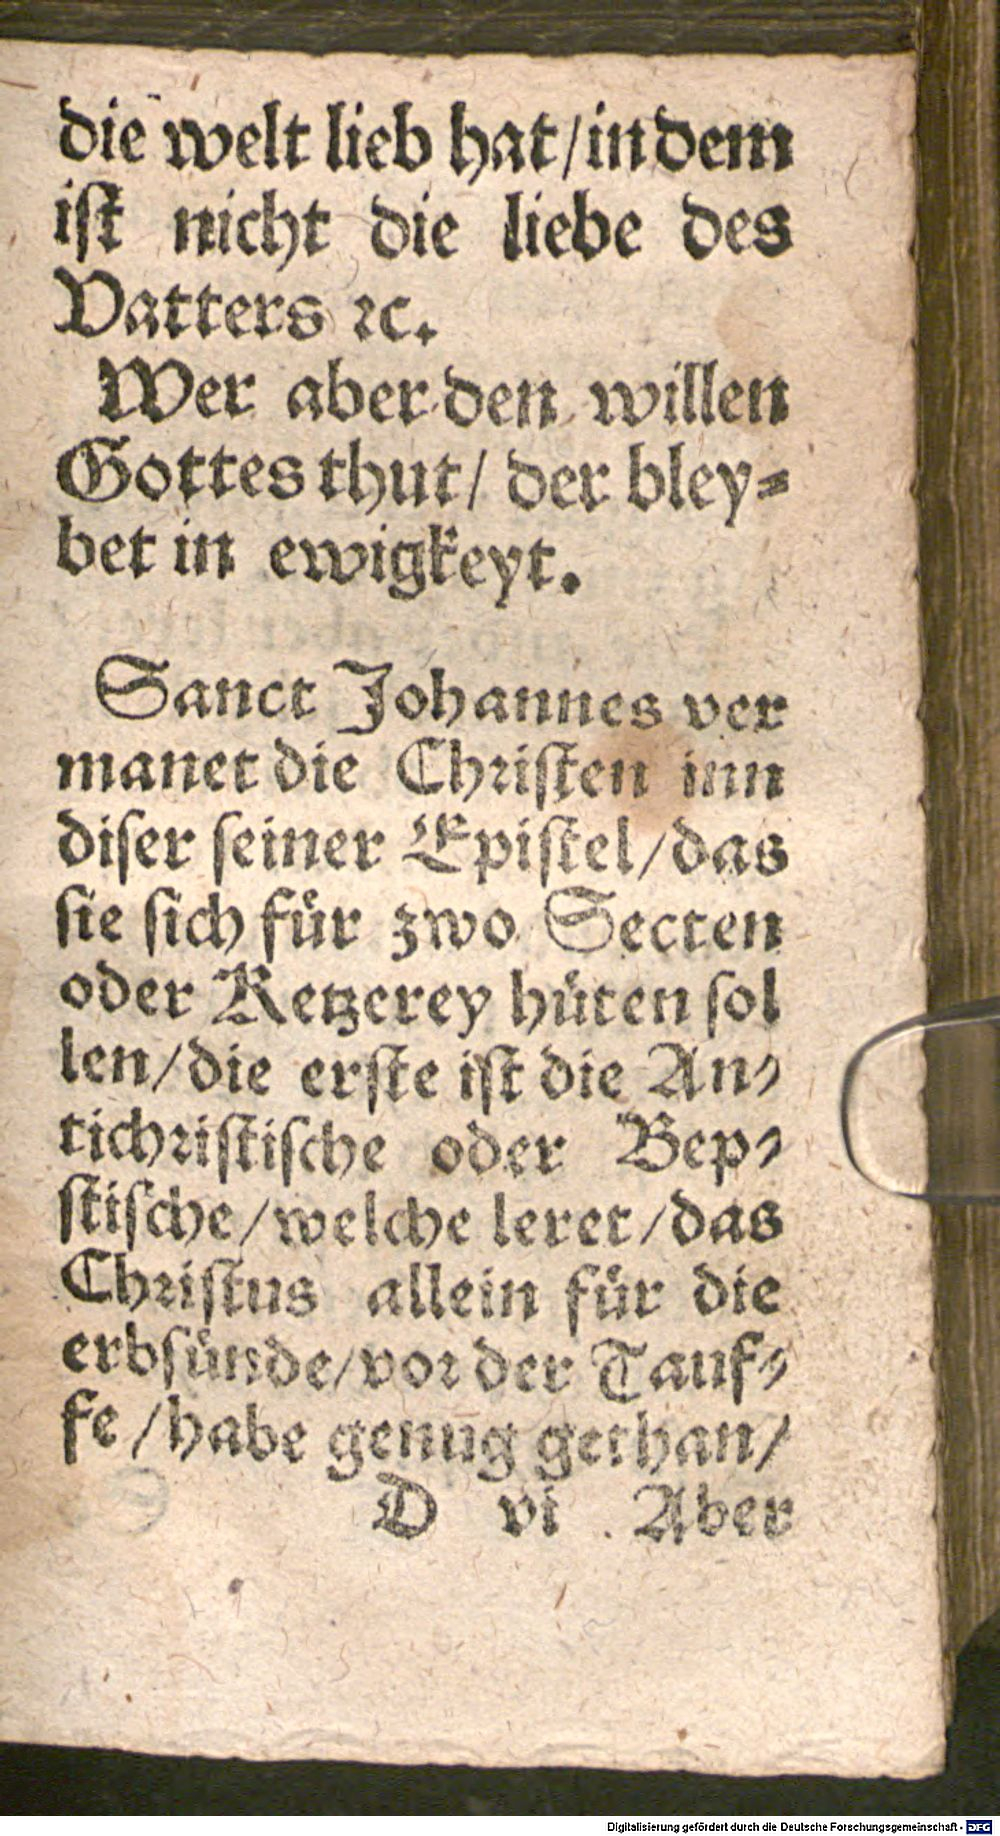 die welt lieb hat/in dem
iſt nicht die liebe des
Vatters ꝛc.
Wer aber den willen
Gottes thut/ der bley⸗
bet in ewigkeyt.
Sanct Johannes ver
manet die Chꝛiſten inn
diſer ſeiner Epiſtel/das
ſie ſich für zwo Secten
oder Ketzerey hüten ſol
len/die erſte iſt die An⸗
tichꝛiſtiſche oder Bep⸗
ſtiſche/welche leret/das
Chꝛiſtus allein für die
erbſünde/voꝛ der Tauf⸗
fe/habe genug gethan/
D vi Aber
Digitalisierung gefördert durch die Deutsche Forschungsgemeinschaft - DFG